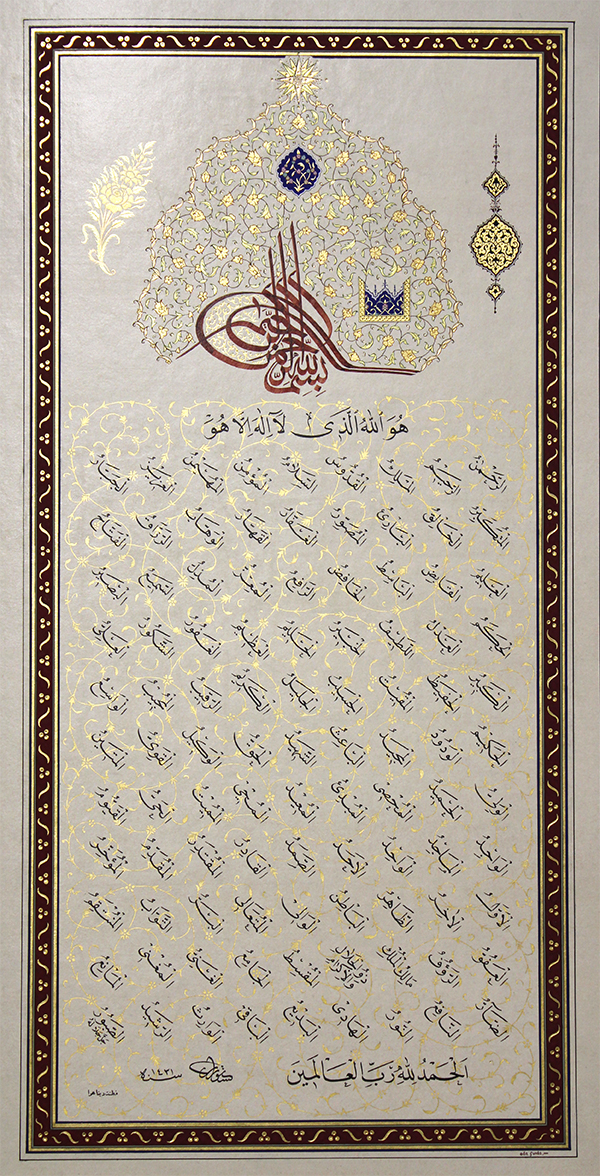 بسم الله الرحمن الرحيم
هُوَ اللهُ الَّذِى لَآ اِلٰهَ اِلَّا هُوَ
الرحمن الرحيم الملك القدوس السلام المؤمن المهيمن العزيز الجبار
المتكبر الخالق البارئ المصور الغفار القهار الوهاب الرزاق الفتاح
العليم القابض الباسط الخافض الرافع المعز المذل السميع البصير
الحكم العدل اللطيف الخبير الحليم العظيم الغفور الشكور العلى
الكبير الحفيظ المقيت الحسيب الجليل الكريم الرقيب المجيب الواسع
الحكيم الودود المجيد الباعث الشهيد الحق الوكيل القوى المتين
الولى الحميد المحصى المبدئ المعيد المحيى المميت الحى القيوم
الواجد الماجد الواحد الاحد الصمد القادر المقتدر المقدم المؤخر
الاول الاخر الظاهر الباطن الوالى المتعالى البر التواب المنتقم
العفو الرؤف مالك الملك ذو الجلال والاكرام المقسط الجامع الغنى المغنى المانع
الضار النافع النور الهادى البديع الباقى الوارث الرشيد الصبور
اَلْحَمْدُ لِلّٰهِ رَبِّ الْعَالَمِينَ
سنه ١٤٣١